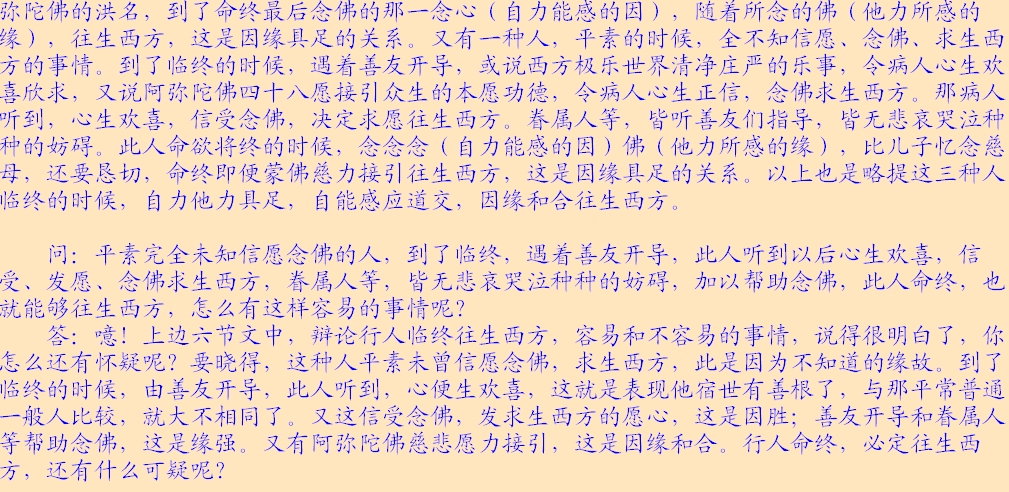 弥陀佛的洪名，到了命终最后念佛的那一念心（自力能感的因），随着所念的佛（他力所感的
缘），往生西方，这是因缘具足的关系。又有一种人，平素的时候，全不知信愿、念佛、求生西
方的事情。到了临终的时候，遇着善友开导，或说西方极乐世界清净庄严的乐事，令病人心生欢
喜欣求，又说阿弥陀佛四十八愿接引众生的本愿功德，令病人心生正信，念佛求生西方。那病人
听到，心生欢喜，信受念佛，决定求愿往生西方。眷属人等，皆听善友们指导，皆无悲哀哭泣种
种的妨碍。此人命欲将终的时候，念念念（自力能感的因）佛（他力所感的缘），比儿子忆念慈
母，还要恳切，命终即便蒙佛慈力接引往生西方，这是因缘具足的关系。以上也是略提这三种人
临终的时候，自力他力具足，自能感应道交，因缘和合往生西方。
问：平素完全未知信愿念佛的人，到了临终，遇着善友开导，此人听到以后心生欢喜，信
受、发愿、念佛求生西方，眷属人等，皆无悲哀哭泣种种的妨碍，加以帮助念佛，此人命终，也
就能够往生西方，怎么有这样容易的事情呢？
答：噫！上边六节文中，辩论行人临终往生西方，容易和不容易的事情，说得很明白了，你
怎么还有怀疑呢？要晓得，这种人平素未曾信愿念佛，求生西方，此是因为不知道的缘故。到了
临终的时候，由善友开导，此人听到，心便生欢喜，这就是表现他宿世有善根了，与那平常普通
一般人比较，就大不相同了。又这信受念佛，发求生西方的愿心，这是因胜；善友开导和眷属人
等帮助念佛，这是缘强。又有阿弥陀佛慈悲愿力接引，这是因缘和合。行人命终，必定往生西
方，还有什么可疑呢？